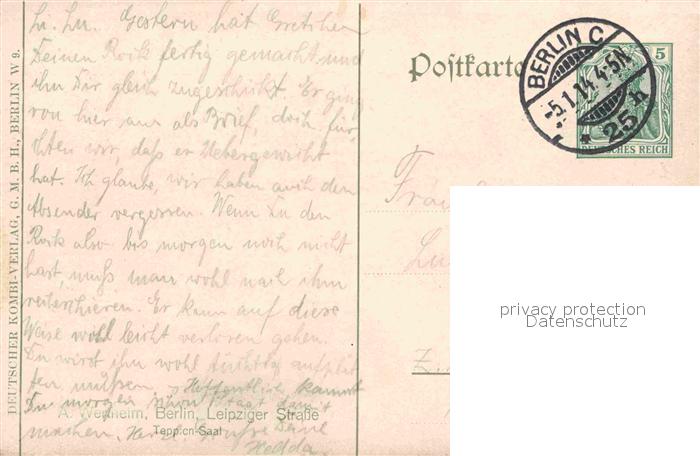 L. Lu. Gestern hat Gretchen
Deinen Rock fertig gemacht und
ihn Dir gleich zugeschickt. Er ging
von hier aus als Brief, doch für,
chten wir, daß er Uebergewicht
hat. Ich glaube, wir haben auch den
Absender vergessen. Wenn Du den
Rock also bis morgen noch nicht
hast, muß man wohl nach ihm
Er kann auf diese
Weise wohl leicht verloren gehen.
Du wirst ihn wohl tüchtig aufplät
ten müssen. Hoffentlich kannst
Du morgen schon Staat damit
machen. Herzl. Grüsse Deine
Hedda.
A. Wertheim, Berlin, Leipziger Straße
Teppich-Saal
DEUTSCHER KOMBI-VERLAG, G. M. B. H., BERLIN W 9.
Postkarte
BERLIN C
-5.1.14.4-5N.
* 25 h
5
DEUTSCHES REICH
Z.
privacy protection
Datenschutz